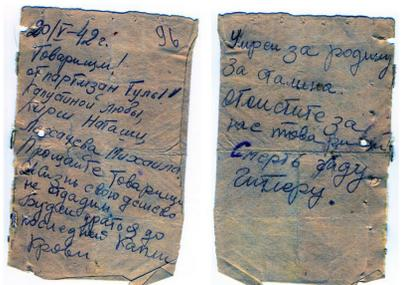 20/V-42 г.
96
Товарищи!
от партизан
Голубиной Любы,
Наташи
Михаила
Прощайте Товарищи
Жизнь свою дешево
не отдадим
Будем драться до
последней капли
крови.
Умрем за родину
За Сталина.
отомстите за
нас товарищи
Смерть гаду
Гитлеру.